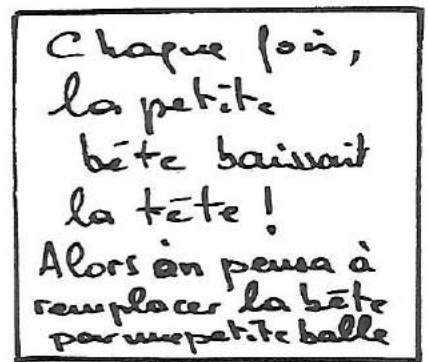 Chaque fois,
la petite
bête baissait
la tête !
Alors on pensa à
remplacer la bête
par une petite balle